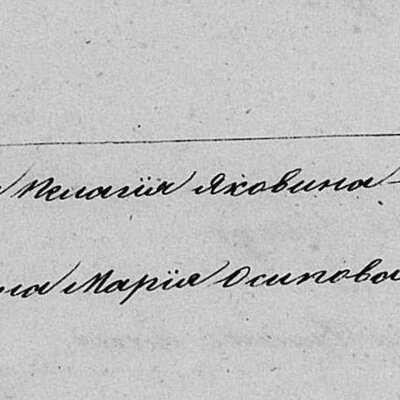 Пелагія Яковина
Марія Осипова